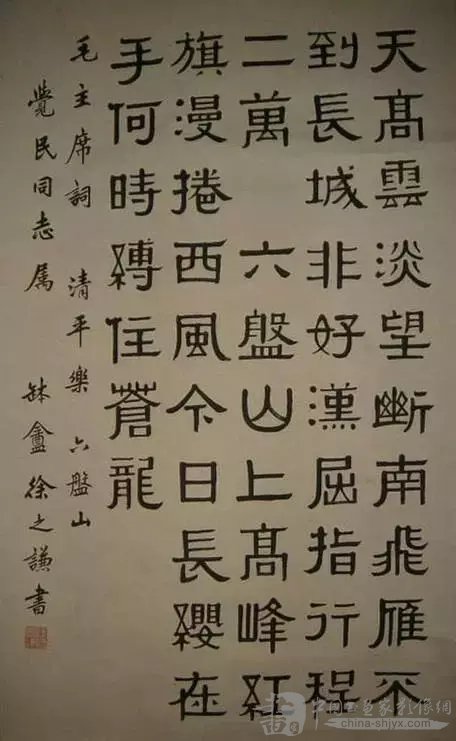 天高雲淡望斷南飛雁不
到長城非好漢屈指行程
二萬 六盤山上高峰紅
旗漫捲西風今日長纓在
手何時縛住蒼龍
毛主席詞 清平樂 六盤山
覺民同志属 缽盦徐之謙書
中国书画家影像網
china-shjyx.com